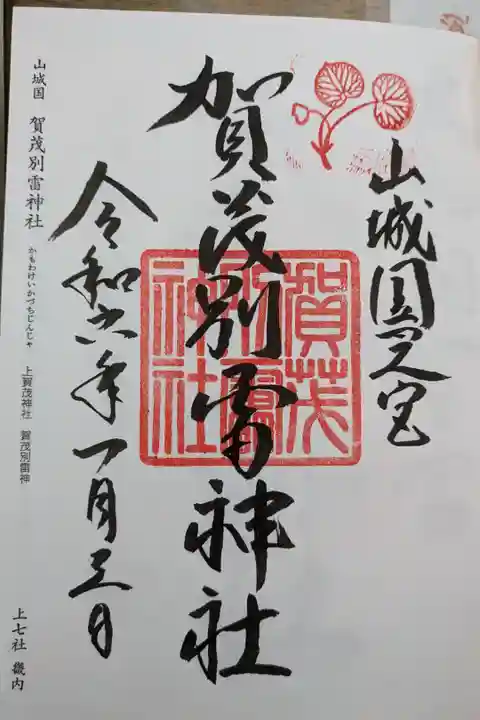 山城国一之宮
賀茂別雷神社
賀茂
別雷
神社
令和六年一月三日
山城国 賀茂別雷神社 かもわけいかづちじんじゃ 上賀茂神社 賀茂別雷神 上七社 畿内